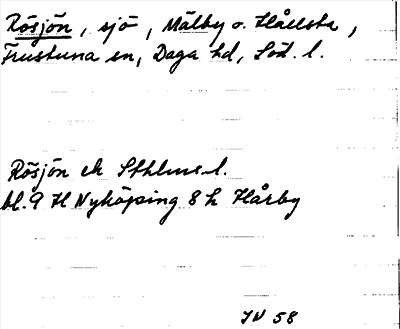 Rösjön, sjö, Mälby o. Hållsta,
Frustuna sn, Daga hd, Söd. l.
Rösjön ek Sthlms l.
bl. 9 H Nyköping 8 h Hårby
JN 58